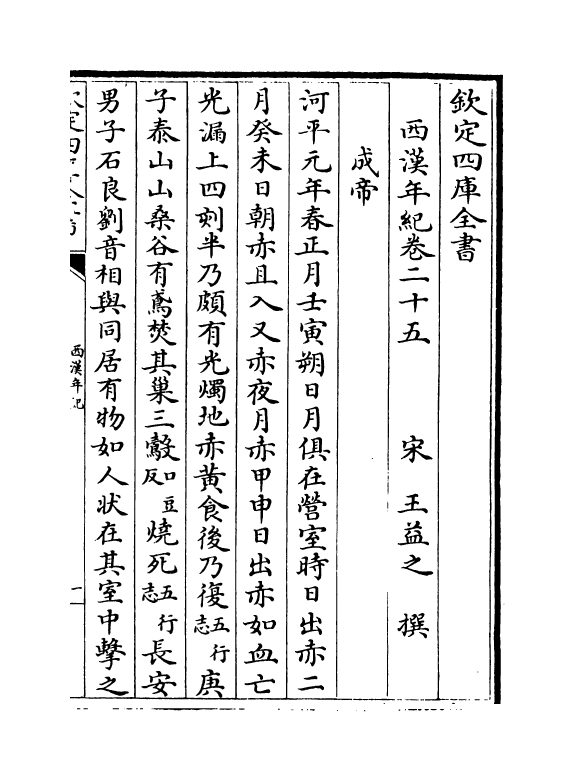 欽定四庫全書
西漢年紀卷二十五　宋　王益之　撰
成帝
河平元年春正月壬寅朔日月俱在營室時日出赤二
月癸未日朝赤且入又赤夜月赤甲申日出赤如血亡
光漏上四刻半乃頗有光燭地赤黃食後乃復五行志庚
子泰山山桑谷有鳶焚其巢三鷇口豆反燒死五行志長安
男子石良劉音相與同居有物如人狀在其室中擊之
西漢年紀